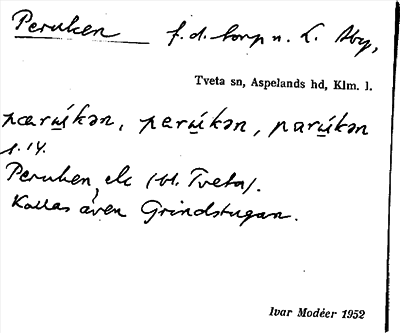 Peruken f. d. torp u. L. Åby,
Tveta sn, Aspelands hd, Klm. l.
pærúkən, perúkən, parúkən
s. 14.
Peruken, ek (bl. Tveta).
Kallas även Grindstugan.
Ivar Modéer 1952